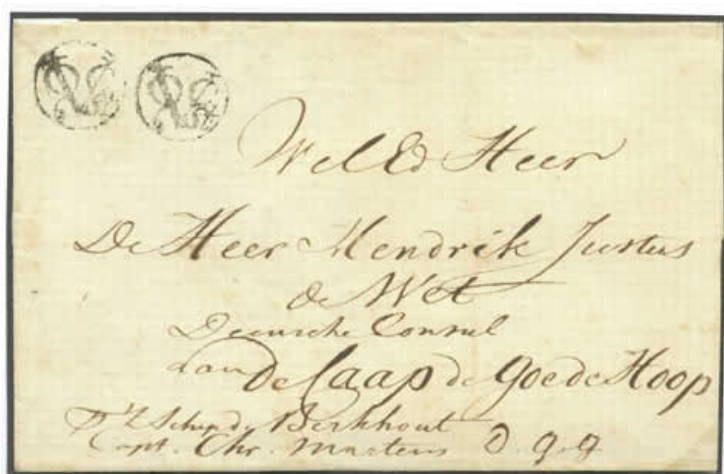 Wel Ed Heer
De Heer Hendrik Justus
de Wet
Deensche Consul
aan de Caap de Goede Hoop
Schip de Berkhout
Capt. Chr. Martens D. G. G